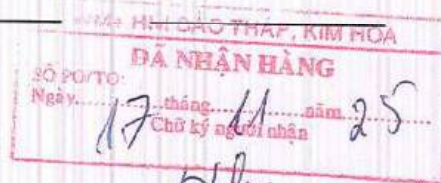 HNI CAO THẮP, KIM HOA
ĐÃ NHẬN HÀNG
SỐ PO/TO:
Ngày 17 tháng 11 năm 25
Chữ ký người nhận